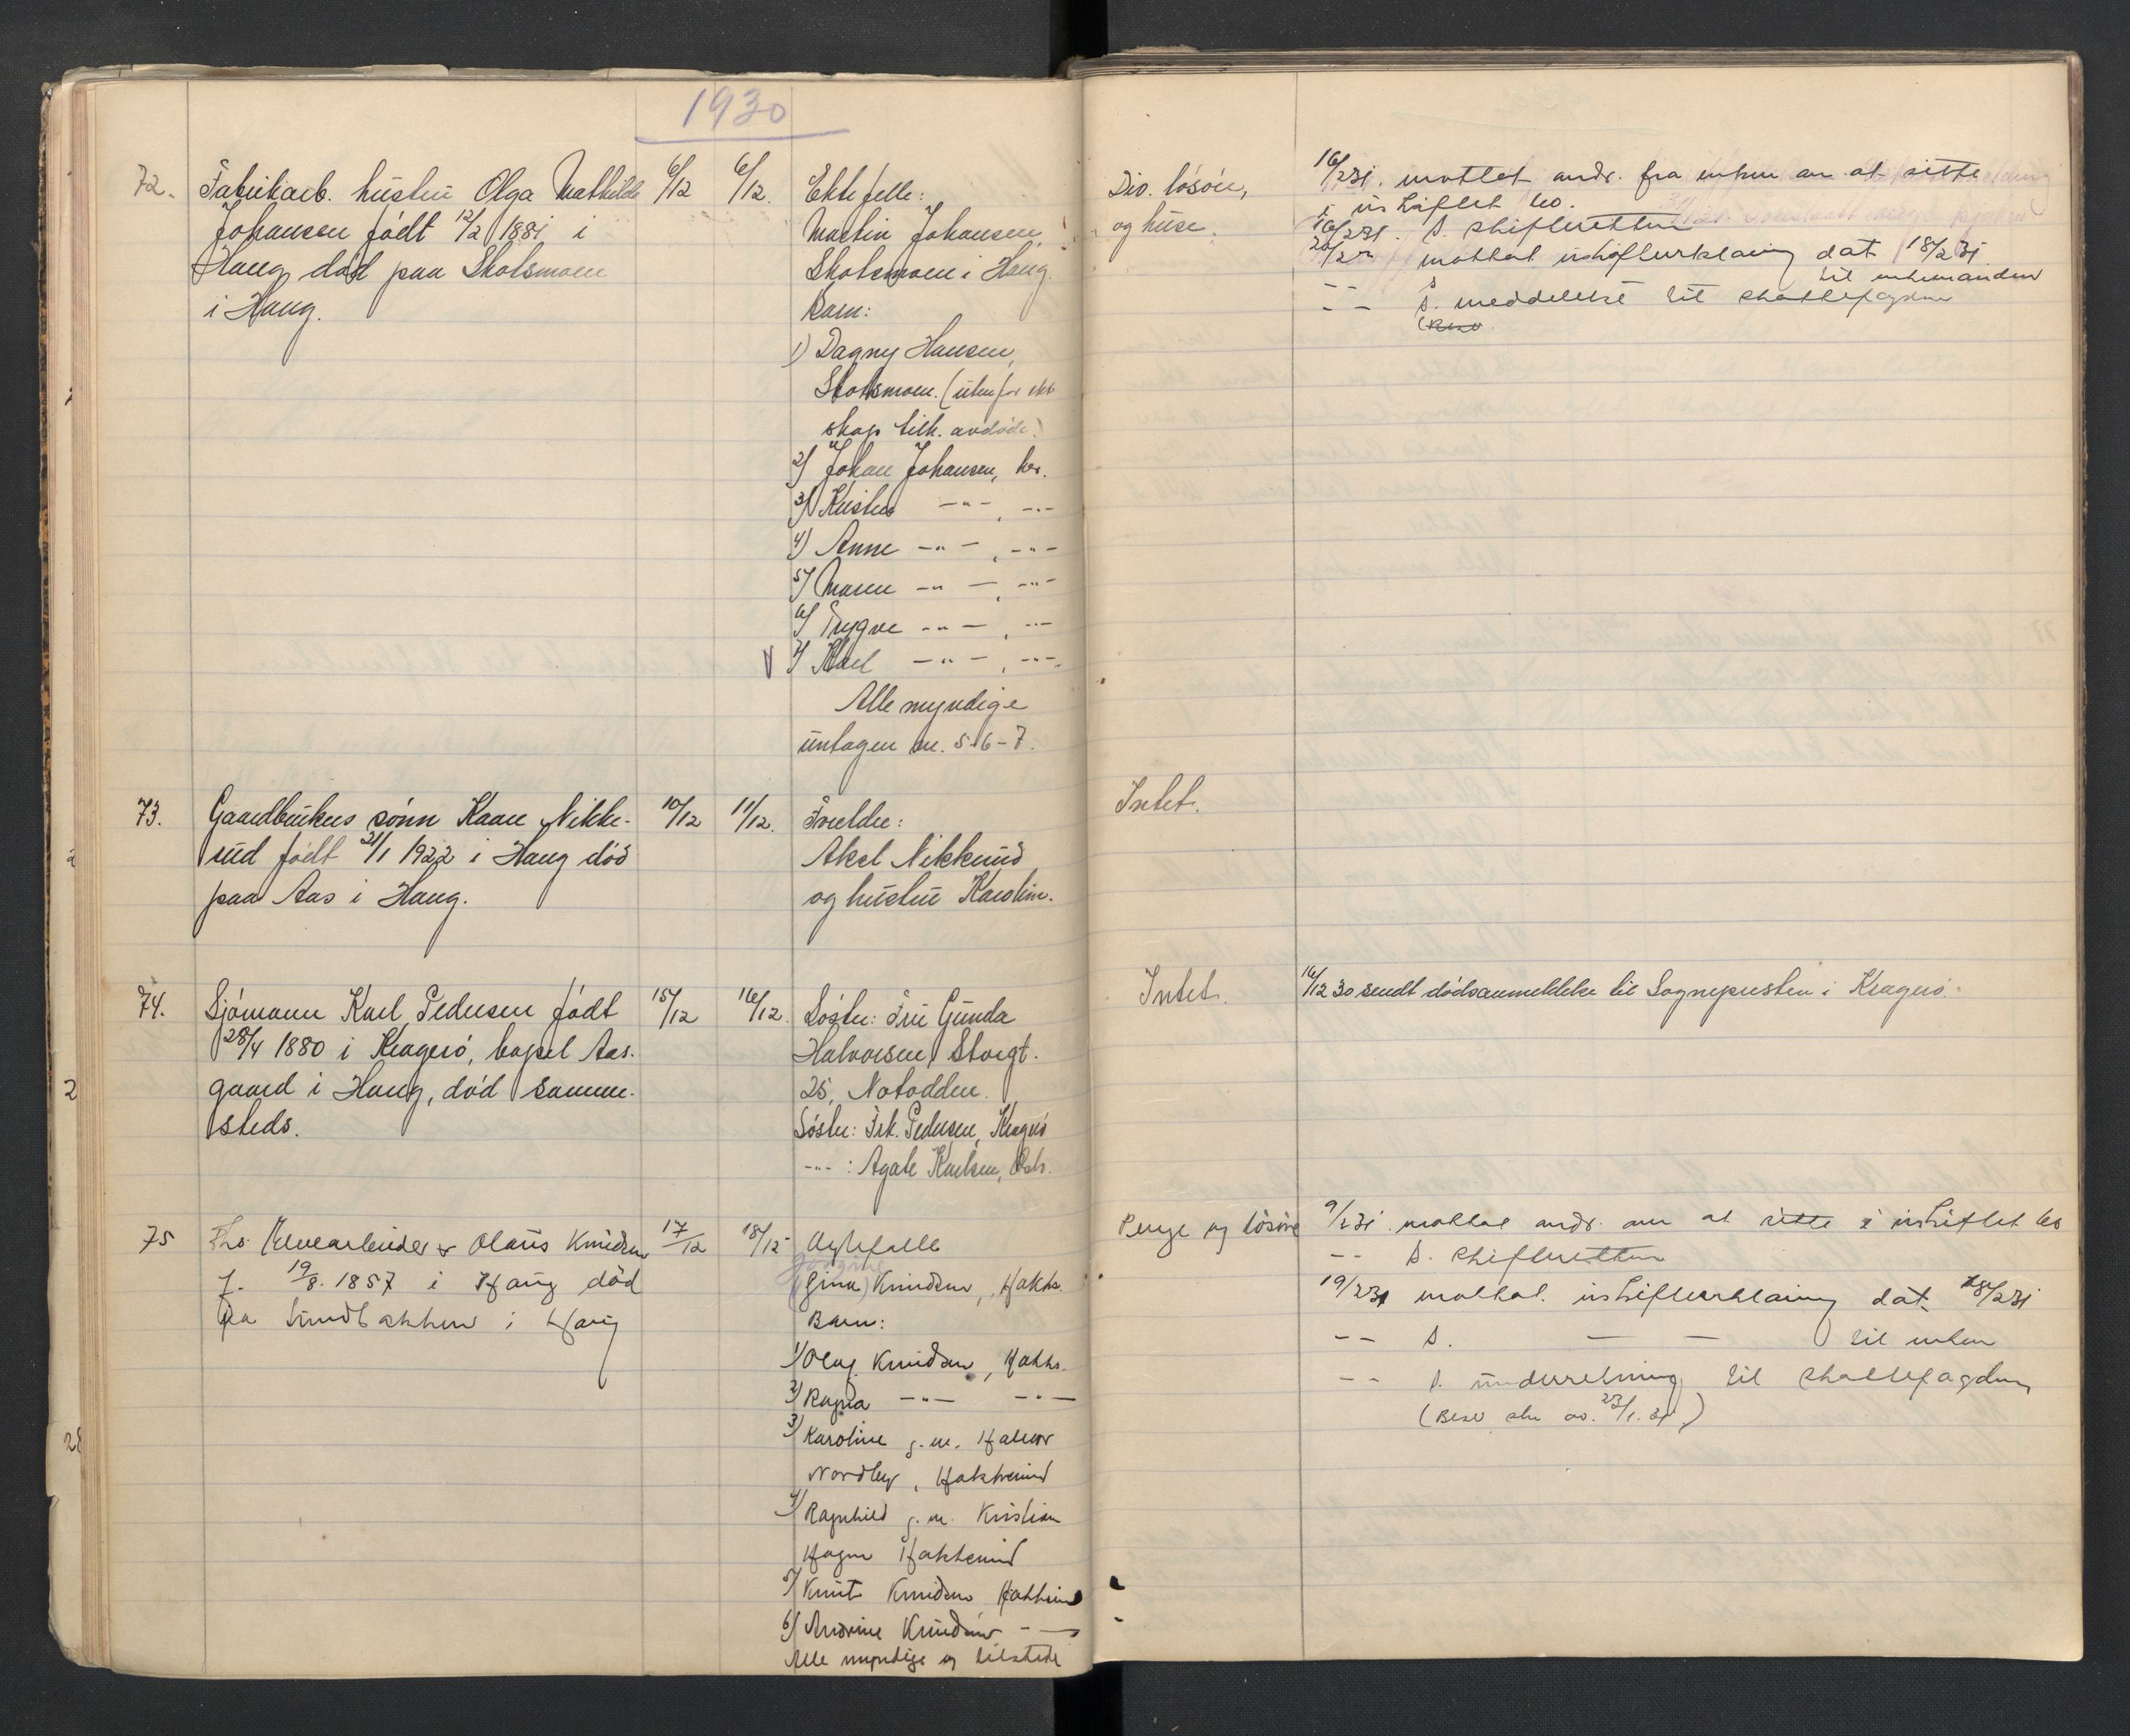 1930
72. Fabrikarb. hustru Olga Mathilde 6/12 6/12. Ektefelle:
Johansen født 12/2 1881 i Martin Johansen,
Haug død paa Skotsmoen Skotsmoen i Haug.
i Haug. Barn:
1) Dagny Hansen,
Skotsmoen. (utenfor ekt
skap tilh. avdøde)
2) Johan Johansen, her.
3) -"- , -"-
4) Anne -"- , -"-
5) Maren -"- , -"-
6) Trygve -"- , -"-
7) Karl -"- , -"-
Alle myndige
untagen nr. 5-6-7.
73. Gaardbrukers sønn Kaare Nikke- 10/12 11/12. Foreldre:
rud født 21/1 1922 i Haug død Aksel Nikkerud
paa Aas i Haug. og hustru Karoline.
74. Sjømann Karl Pedersen født 15/12 16/12. Søster: Fru Gunda
28/4 1880 i Kragerø, bopel Aas- Halvorsen, Storgt.
gaard i Haug, død samme- 25, Notodden.
steds. Søster: Frk. Pedersen, Kragerø
-"- : Agate Karlsen,
75 Elvearbeider Olaus Knudsen 17/12 18/12 Ægtefælle
f. 19/8. 1857 i Haug død (Gina) Knudsen, Hakks.
pa Sundbakken i Haug Barn:
1) Olaf Knudsen, Hakks.
2) Ragna -"- -"-
3) Karoline g. m. Halvor
Nordby, Hakkerud
4) Ragnhild g. m. Kristian
Hagen Hakkerud
5) Knut Knudsen Hakkerud
6) Andrine Knudsen -"-
Alle myndige og tilstede
Div. løsøre, 16/2 31. mottat andr. fra enken om at sitte
og huse. i uskiftet bo.
16/2 31. s. skifteretten
20/2 mottat uskifteerklæring dat 18/2 31
til enkemanden
-- s. meddelelse til skattefogden
Intet.
Intet. 16/12 30 sendt dødsanmeldelse til Sognepresten i Kragerø.
Penge og løsøre 9/2 31. mottat andr. om at sitte i uskiftet bo
-- s. skifteretten
19/2 31 mottat. uskifteerklæring dat. 18/2 31
-- s. — — til enken
-- s. underretning til skattefogden
(Besv skr av. 23/1. 31)